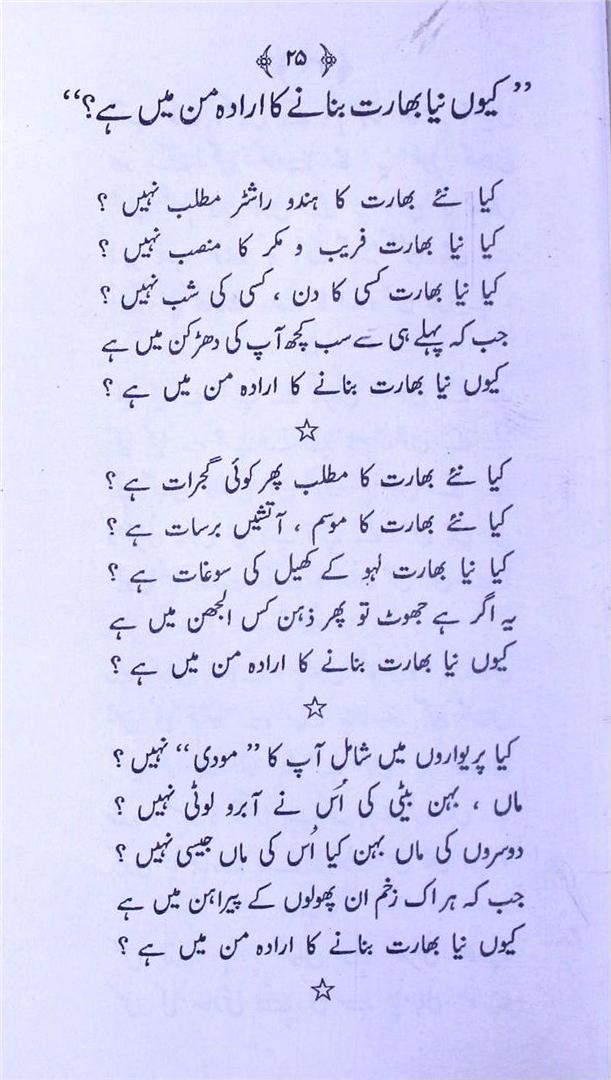 ۲۵
”کیوں نیا بھارت بنانے کا ارادہ من میں ہے؟“
کیا نئے بھارت کا ہندو راشٹر مطلب نہیں ؟
کیا نیا بھارت فریب و مکر کا منصب نہیں ؟
کیا نیا بھارت کسی کا دن ، کسی کی شب نہیں ؟
جب کہ پہلے ہی سے سب کچھ آپ کی دھڑکن میں ہے
کیوں نیا بھارت بنانے کا ارادہ من میں ہے ؟
☆
کیا نئے بھارت کا مطلب پھر کوئی گجرات ہے ؟
کیا نئے بھارت کا موسم ، آتشیں برسات ہے ؟
کیا نیا بھارت لہو کے کھیل کی سوغات ہے ؟
یہ اگر ہے جھوٹ تو پھر ذہن کس الجھن میں ہے
کیوں نیا بھارت بنانے کا ارادہ من میں ہے ؟
☆
کیا پریواروں میں شامل آپ کا ”مودی“ نہیں ؟
ماں ، بہن بیٹی کی اُس نے آبرو لوٹی نہیں ؟
دوسروں کی ماں بہن کیا اُس کی ماں جیسی نہیں ؟
جب کہ ہر اک زخم ان پھولوں کے پیراہن میں ہے
کیوں نیا بھارت بنانے کا ارادہ من میں ہے ؟
☆